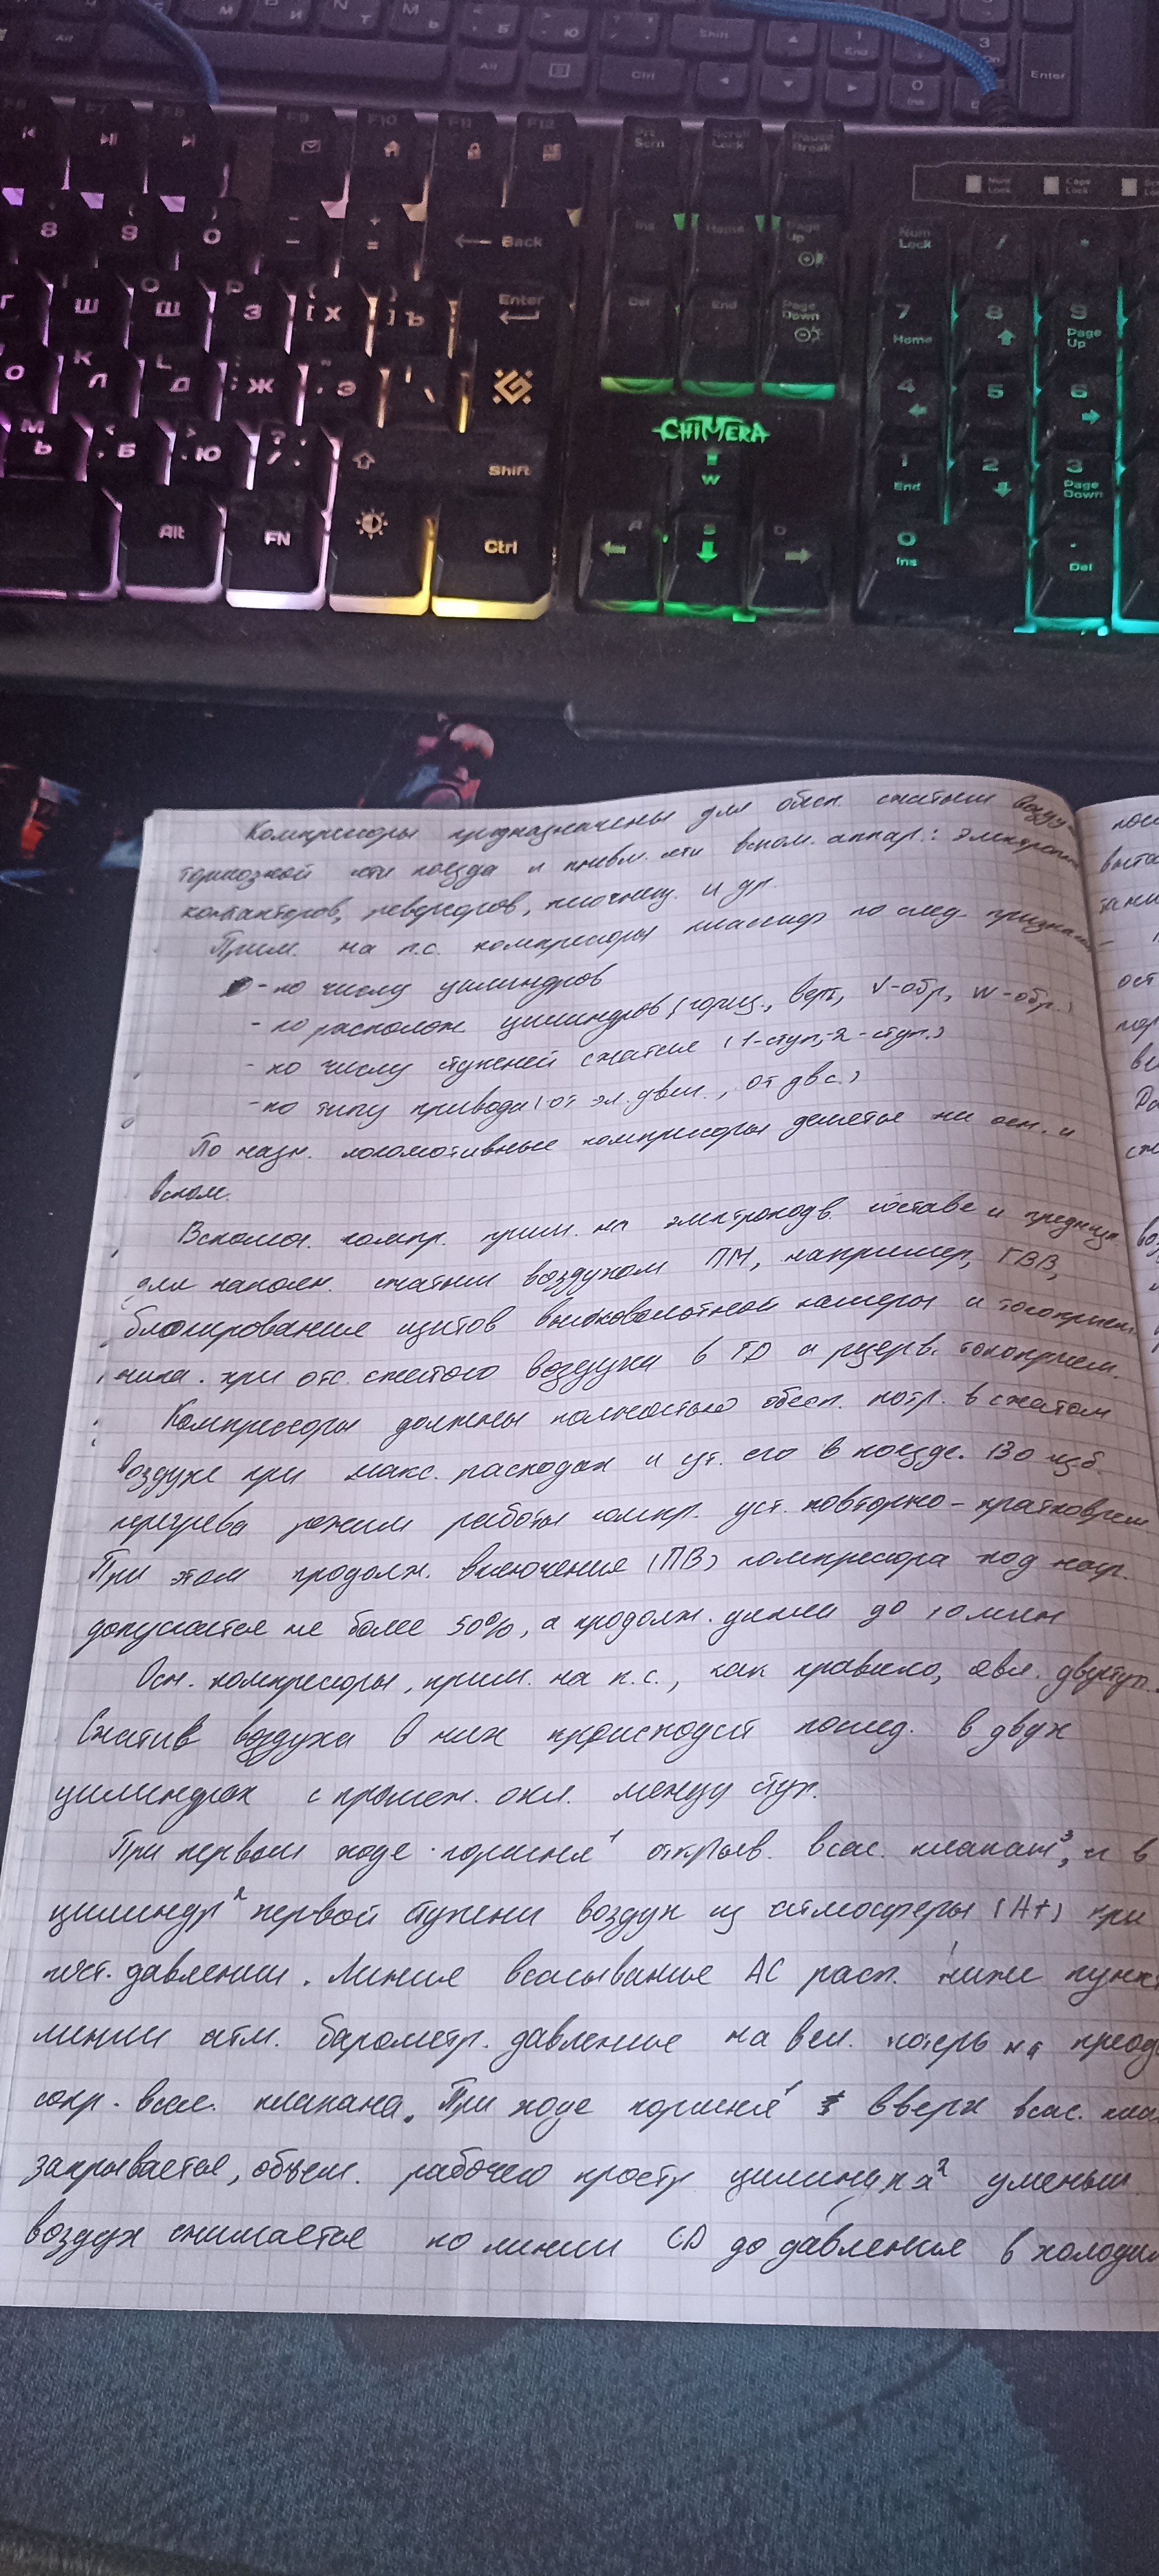 Alt
Shift
Alt
Ctrl
1
End
3
0
Ins
Enter
F6 F7 F8 F9 F10 F11 F12
Prt Scrn
Scroll Lock
Pause Break
Num Lock
Caps Lock
8 9 0 - + =
Back
Ins Home Page Up
Num Lock / *
Ш Щ З [ Х ] Ъ
Enter
Del End Page Down
7 Home 8 9 Page Up
О К Л L Д Ж Э
4 5 6
CHIMERA
М Ь Б Ю
Shift
W
1 End 2 3 Page Down
Alt FN Ctrl
A S D
0 Ins . Del
Компрессоры предназначены для обесп. сжатым возду-
тормозной сети поезда и пневм. сети вспом. аппар.:
контакторов, реверсоров, песочниц. и др.
Прим. на п.с. компрессоры классиф по след. признакам
- по числу цилиндров
- по располож. цилиндров (гориз., верт, V-обр, W-обр.)
- по числу ступеней сжатия (1-ступ, 2-ступ.)
- по типу привода (от эл. двиг., от двс.)
По назн. локомотивные компрессоры делятся на осн. и
вспом.
Вспомог. компр. прим. на электроподв. составе и предназн
для наполн. сжатым воздухом ПМ, например, ГВВ,
блокирования щитов высоковольтной камеры и токоприем
ника. при отс. сжатого воздуха в ГР и резерв. токоприем.
Компрессоры должны полностью обесп. потр. в сжатом
воздухе при макс. расходах и ут. его в поезде. Во изб.
перегрева режим работы компр. уст. повторно-кратковрем.
При этом продолж. включения (ПВ) компрессора под нагр.
допускается не более 50%, а продолж. цикла до 10 мин
Осн. компрессоры, прим. на п.с., как правило, явл. двухступ.
Сжатие воздуха в них происходит послед. в двух
цилиндрах с промеж. охл. между ступ.
При первом ходе поршня 1 открыв. всас. клапан 3, и в
цилиндр 2 первой ступени воздух из атмосферы (Ат) при
пост. давлении. Линия всасывания АС расп. ниже пункт
линии атм. барометр. давление на вел. потерь на преод
сопр. всас. клапана. При ходе поршня 1 вверх всас. кла
закрывается, объем. рабочего простр цилиндра 2 уменьш.
воздух сжимается по линии СD до давления в холодил